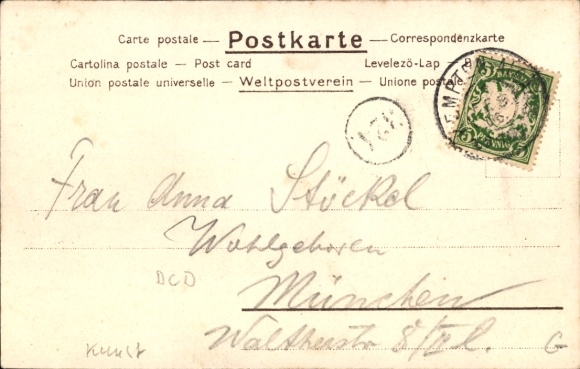 Carte postale — Postkarte — Correspondenzkarte
Cartolina postale — Post card Levelező-Lap —
Union postale universelle — Weltpostverein — Unione postale
BAYERN
5 5
PFENNIG
Frau Anna Stöckel
Wohlgeboren
München
Waltherstr 8/II l.
DCD
Kunst
G